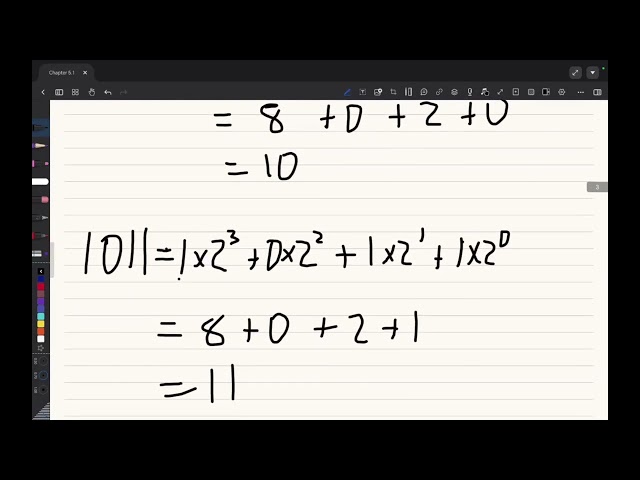 Chapter 5.1
= 8 + 0 + 2 + 0
= 10
3
1011 = 1×2³ + 0×2² + 1×2¹ + 1×2⁰
= 8 + 0 + 2 + 1
= 11